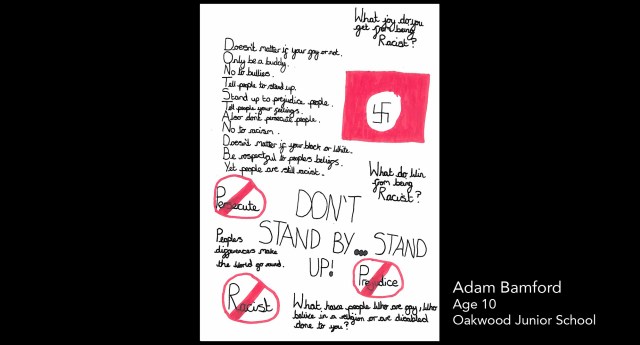 What joy do you
get from being
Racist?
Doesn't matter if your gay or not.
Only be a buddy.
No to bullies.
Tell people to stand up.
Stand up to prejudice people.
Tell people your feelings.
Also don't persecute people.
No to racism.
Doesn't matter if your black or white.
Be respectful to peoples beliefs.
Yet people are still racist.
What do Win
from being
Racist?
Persecute
DON'T
STAND BY... STAND
UP!
Peoples
differences make
the World go round.
Prejudice
Racist
What have people Who are gay, Who
believe in a religion or are disabled
done to you?
Adam Bamford
Age 10
Oakwood Junior School